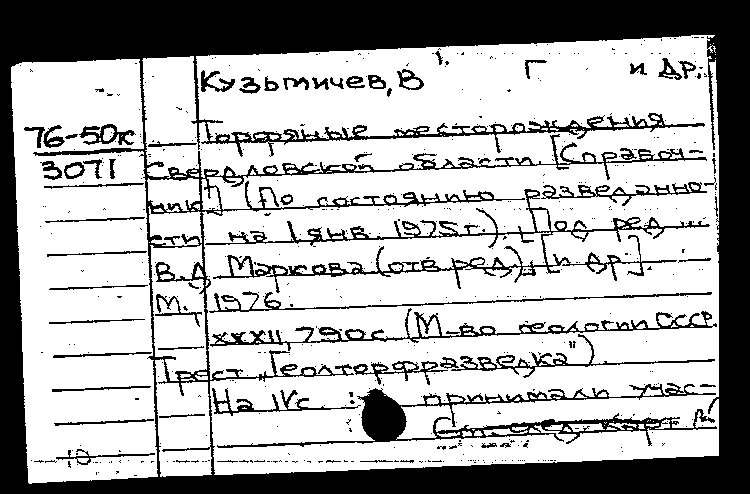 Кузьмичев, В Г и др.
76-50к
3071
Торфяные месторождения
Свердловской области. [Справоч-
ник] (По состоянию разведанно-
сти на 1 янв. 1975г.). [Под ред ...
В.Д Маркова (отв ред), [и др.].
М., 1976.
XXXII, 790с. (М-во геологии СССР.
Трест „Геолторфразведка").
На IVс : принимали учас-
См след. карт